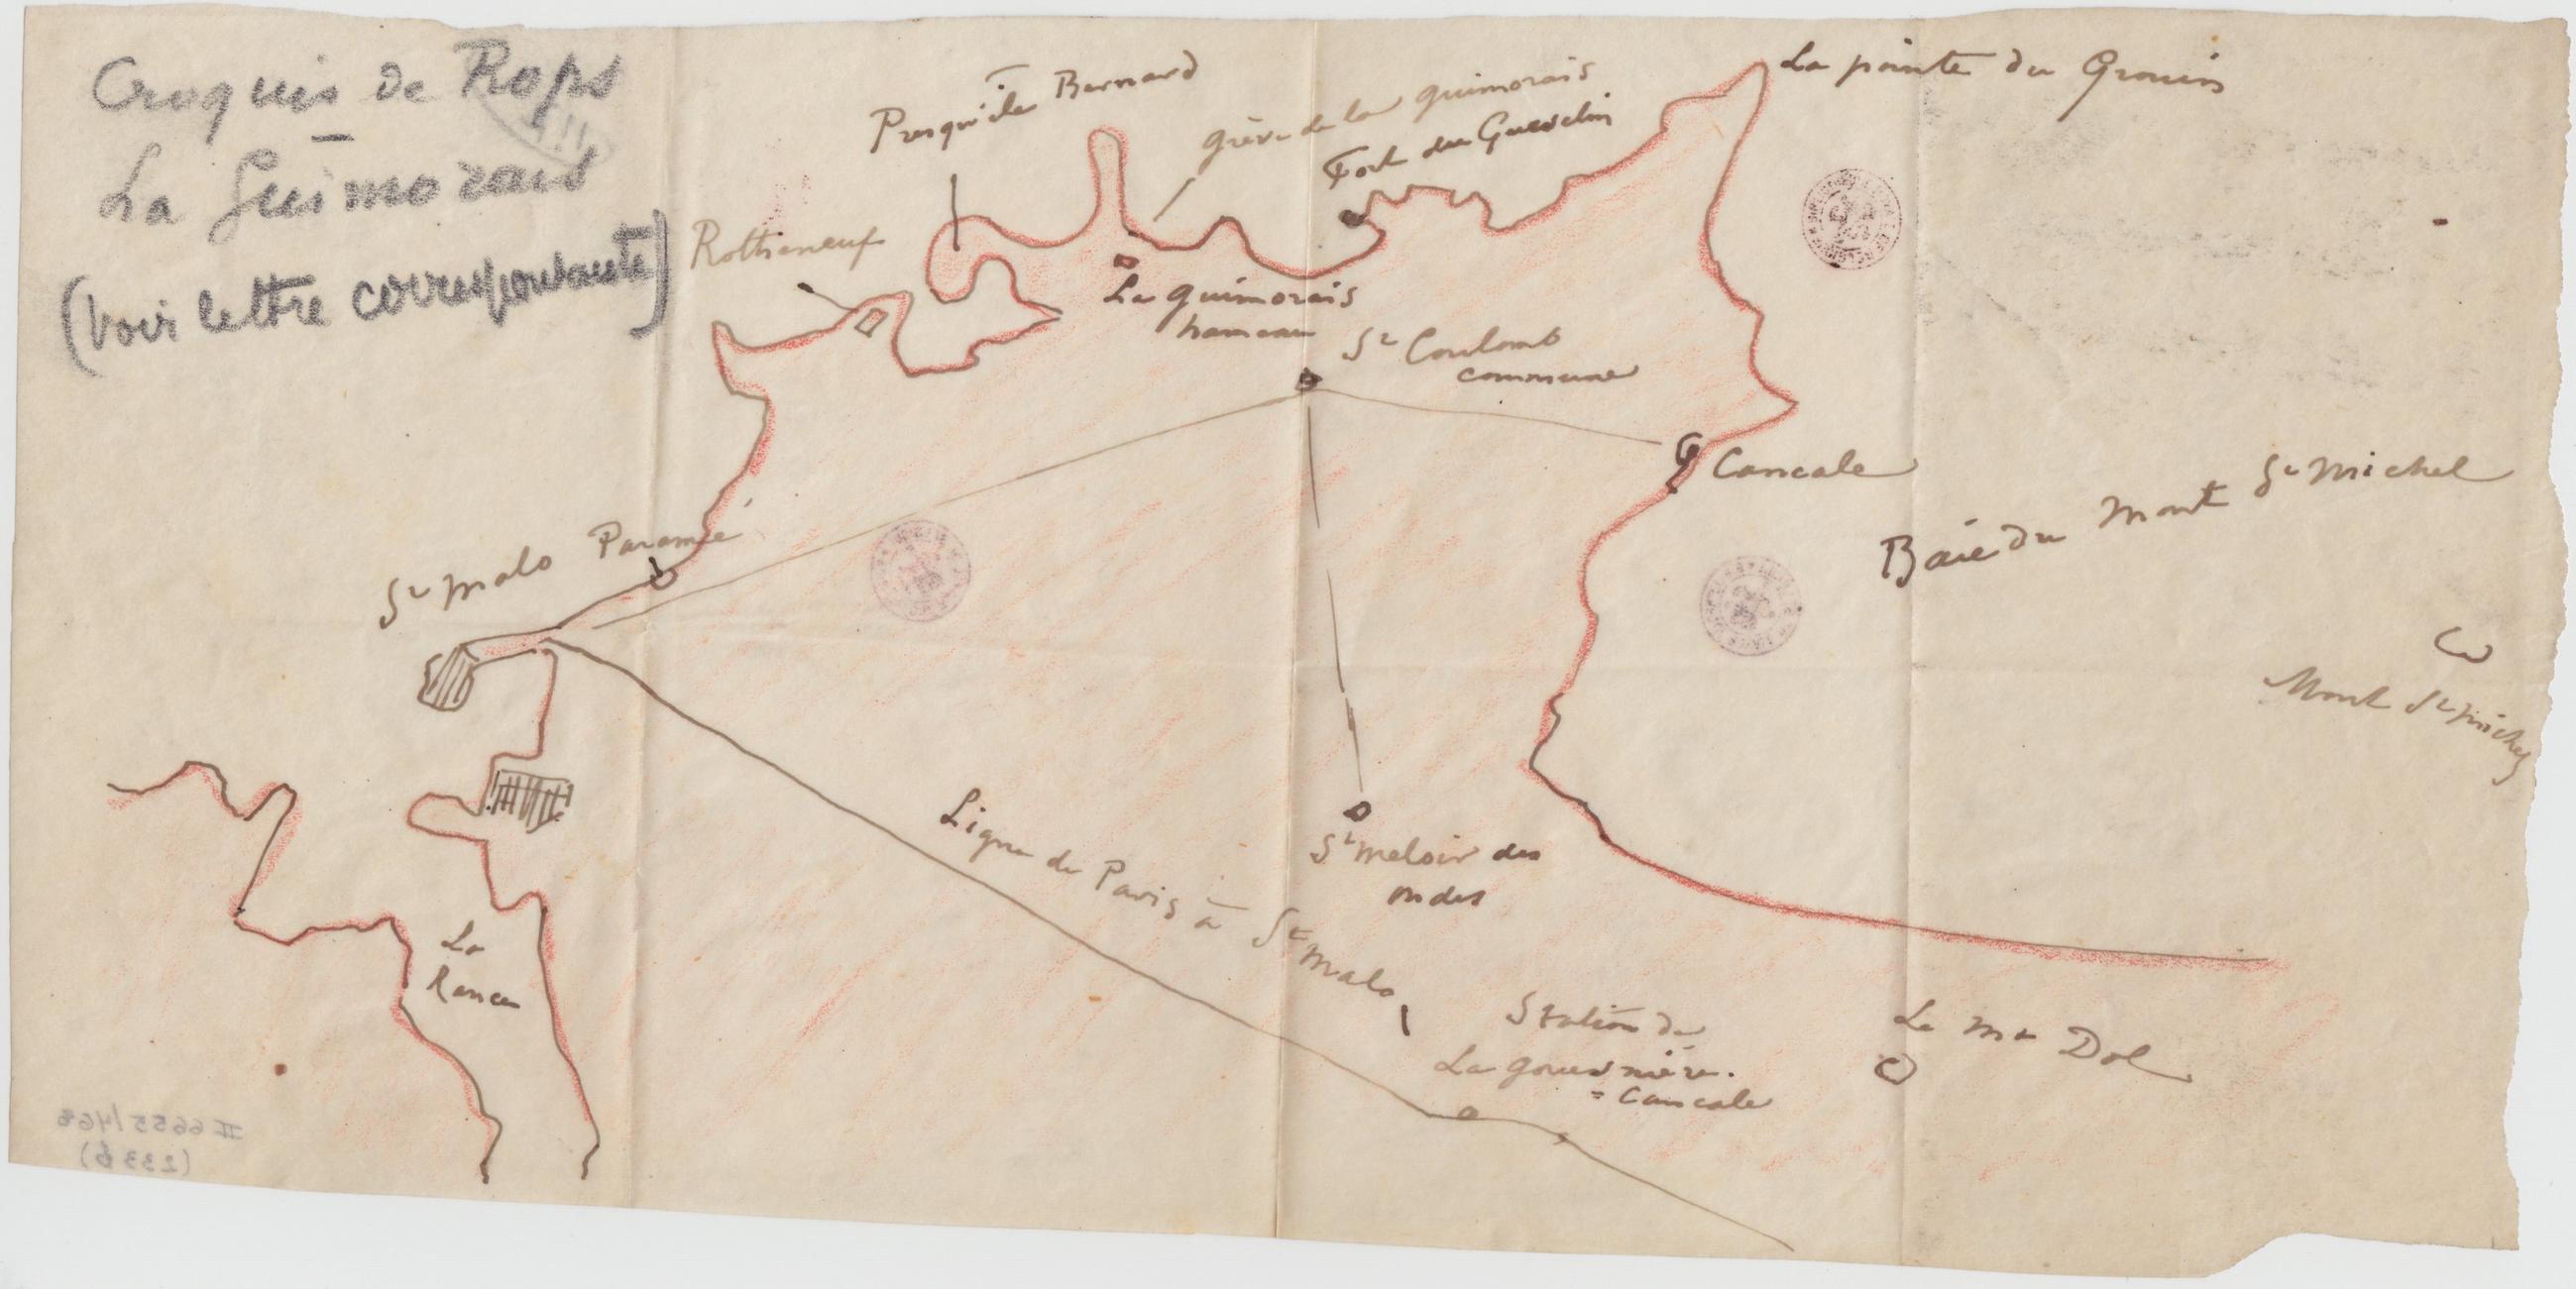 Croquis de Rops
La Guimorais
(Voir lettre correspondante)
Presqu'ile Bernard
grève de la guimorais
Fort du Guesclin
La pointe du Grouin
Rotheneuf
La guimorais
hameau
St Coulomb
commune
Cancale
Baie du Mont St Michel
Mont St Michel
St Malo Paramé
Ligne de Paris à St Malo
St Meloir des
ondes
La
Rance
Station de
La gouesnière.
= Cancale
Le Mt Dol
II 6655/468
(233 b)